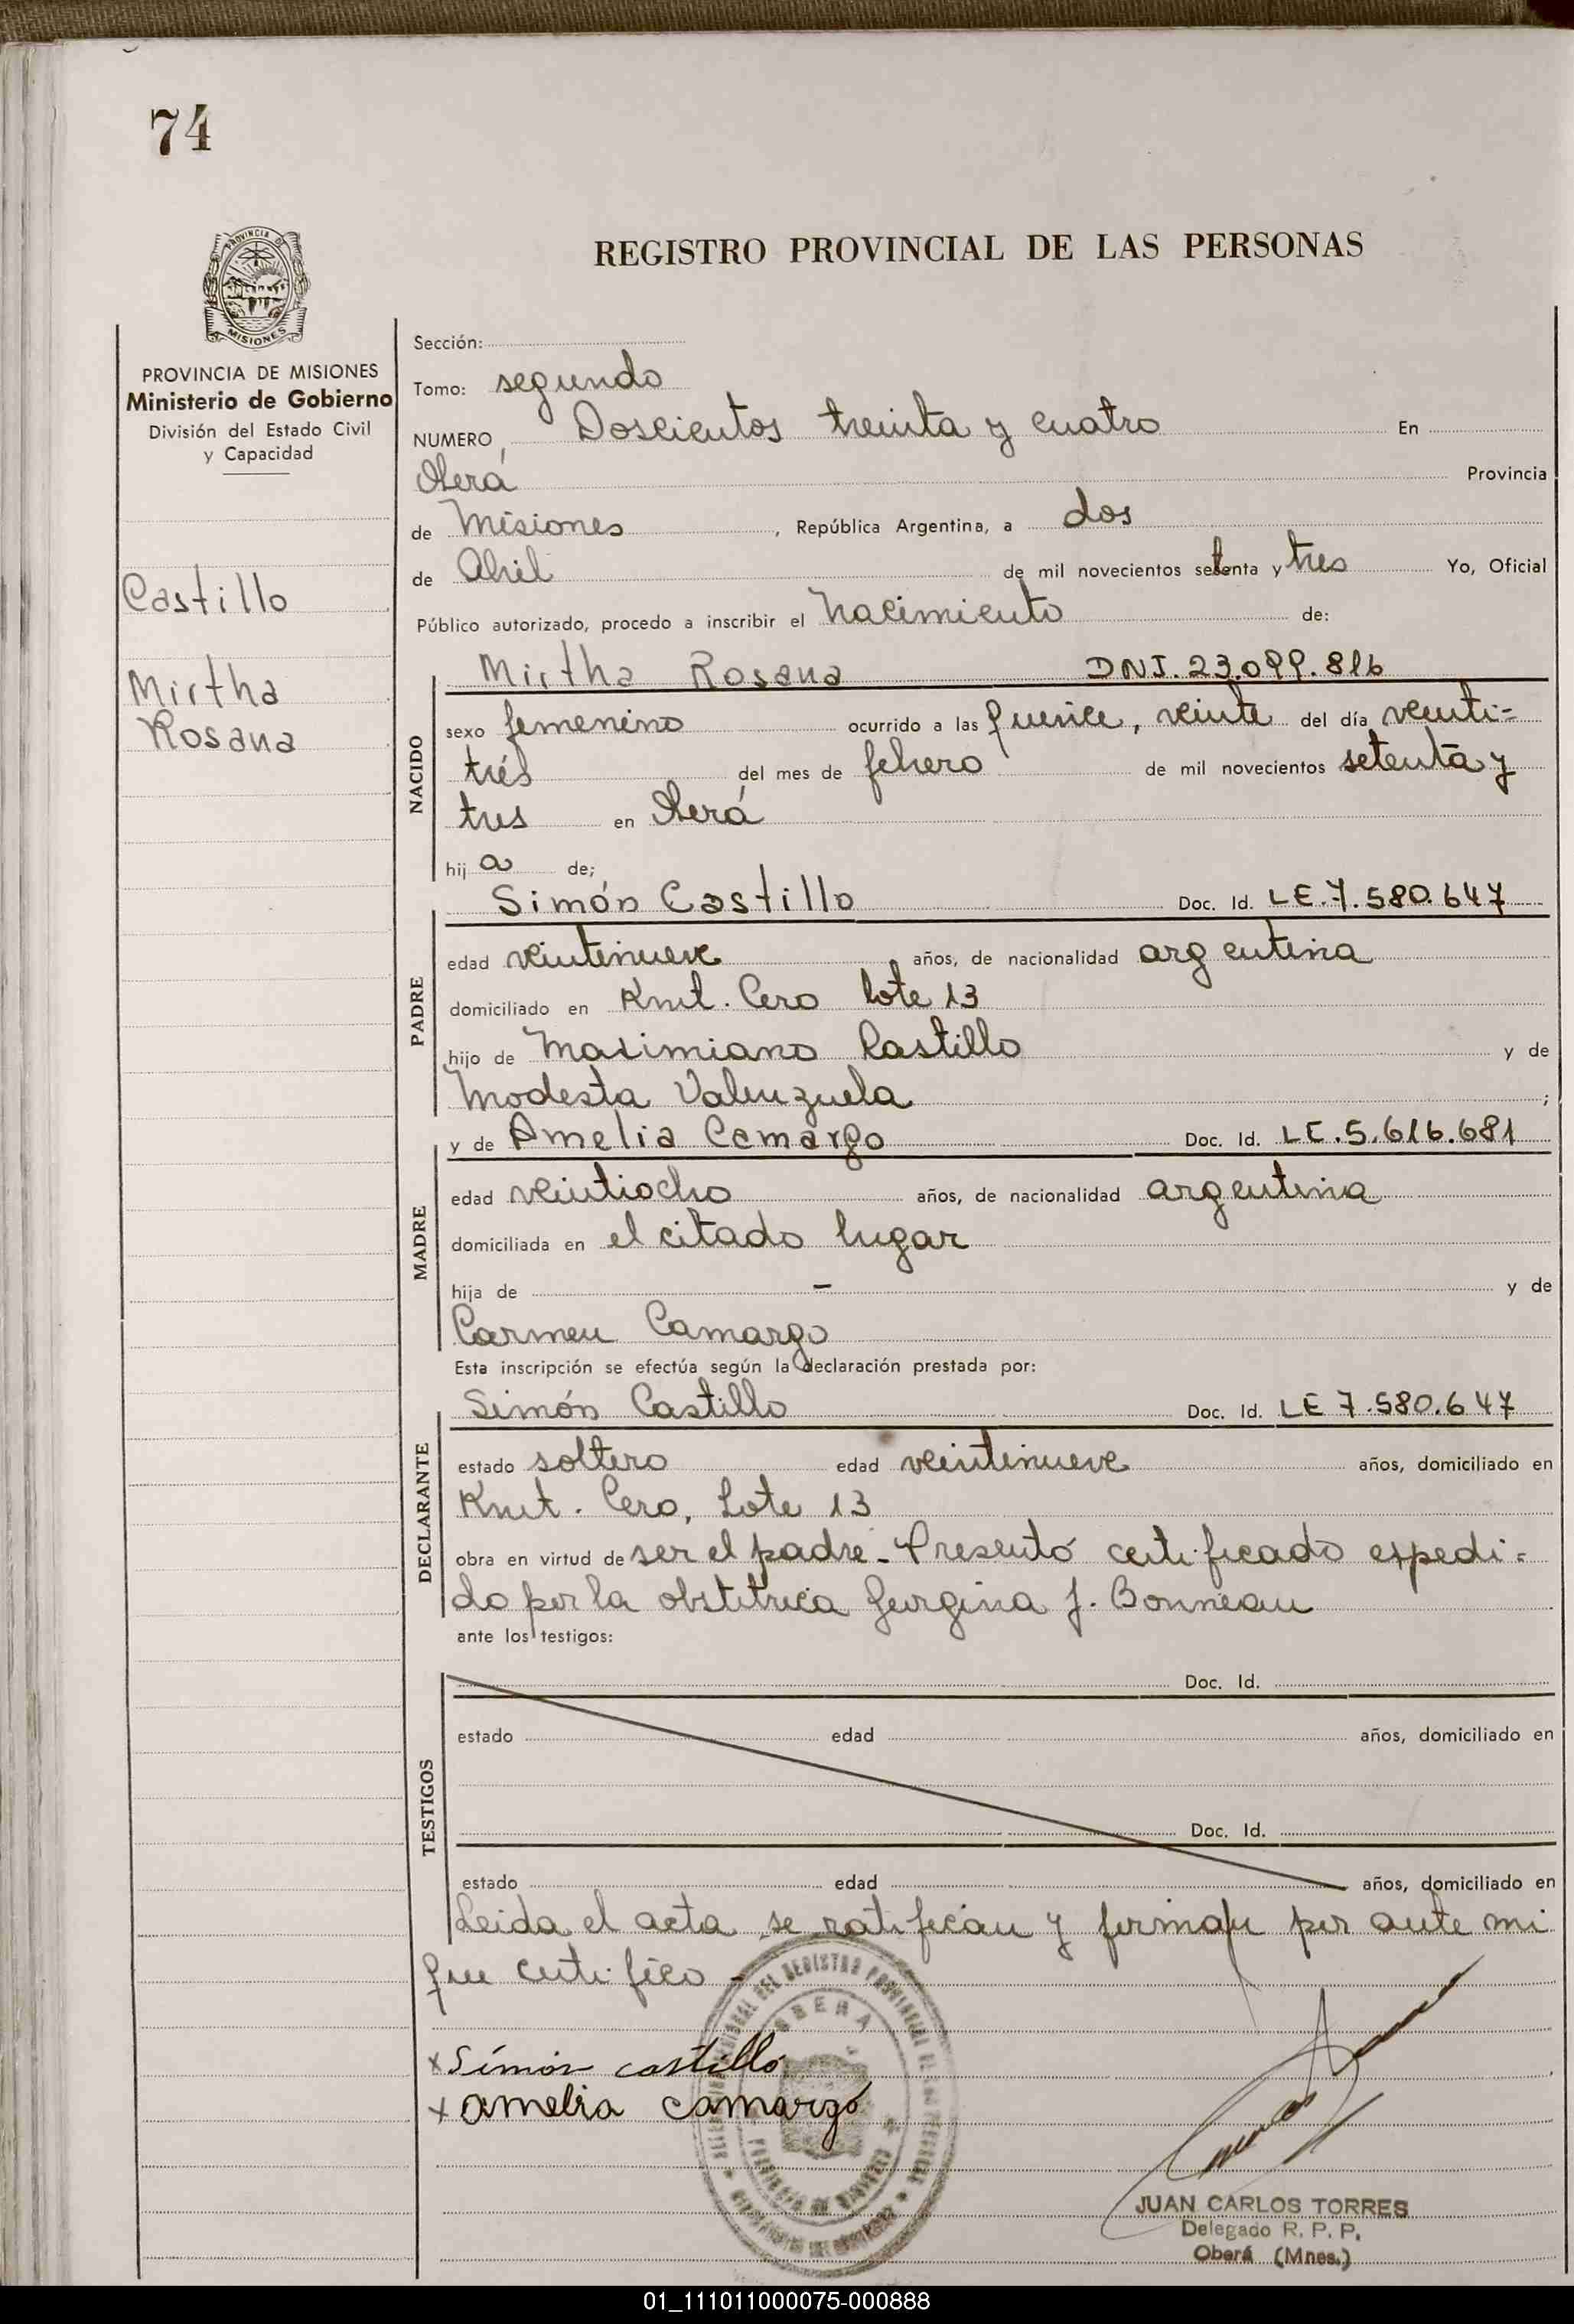 74
PROVINCIA DE
MISIONES
REGISTRO PROVINCIAL DE LAS PERSONAS
PROVINCIA DE MISIONES
Ministerio de Gobierno
División del Estado Civil
y Capacidad
Castillo
Mirtha
Rosana
Sección:
Tomo: segundo
NUMERO, Doscientos treinta y cuatro En
Oberá Provincia
de Misiones, República Argentina, a dos
de Abril de mil novecientos setenta y tres Yo, Oficial
Público autorizado, procedo a inscribir el Nacimiento de:
NACIDO
Mirtha Rosana DNI. 23.099.816
sexo femenino ocurrido a las quince, veinte del día veinti-
trés del mes de febrero de mil novecientos setenta y
tres en Oberá
hij a de;
PADRE
Simón Castillo Doc. Id. LE.7.580.647
edad veintinueve años, de nacionalidad argentina
domiciliado en Kmt. Cero lote 13
hijo de Maximiano Castillo y de
Modesta Valenzuela ;
MADRE
y de Amelia Camargo Doc. Id. LC.5.616.681
edad veintiocho años, de nacionalidad argentina
domiciliada en el citado lugar
hija de - y de
Carmen Camargo
Esta inscripción se efectúa según la declaración prestada por:
DECLARANTE
Simón Castillo Doc. Id. LE 7.580.647
estado soltero edad veintinueve años, domiciliado en
Kmt. Cero, Lote 13
obra en virtud de ser el padre - Presentó certificado expedi-
do por la obstetrica Georgina J. Bonneau
ante los testigos:
TESTIGOS
Doc. Id.
estado edad años, domiciliado en
Doc. Id.
estado edad años, domiciliado en
Leida el acta se ratifican y firman por ante mi
que certifico -
x Simón castillo
x amelia camargo
OBERA
JUAN CARLOS TORRES
Delegado R. P. P.
Oberá (Mnes.)
01_111011000075-000888